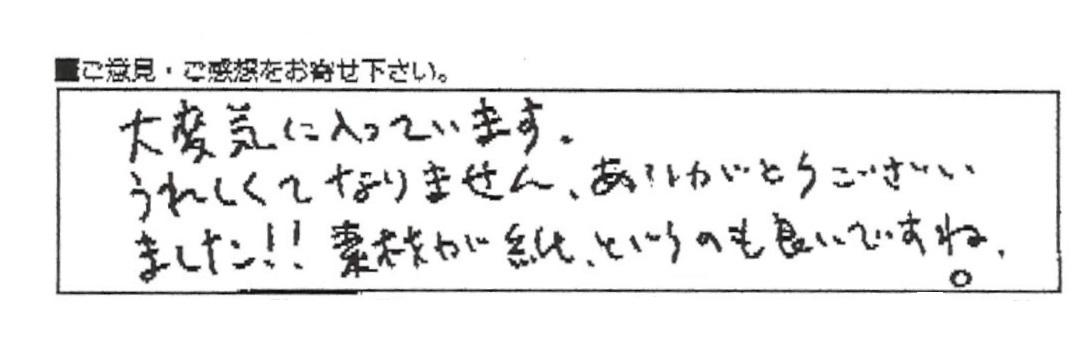 ■ご意見・ご感想をお寄せ下さい。
大変気に入っています。
うれしくてなりません、ありがとうございい
ました!! 素材が紙、というのも良いですね。